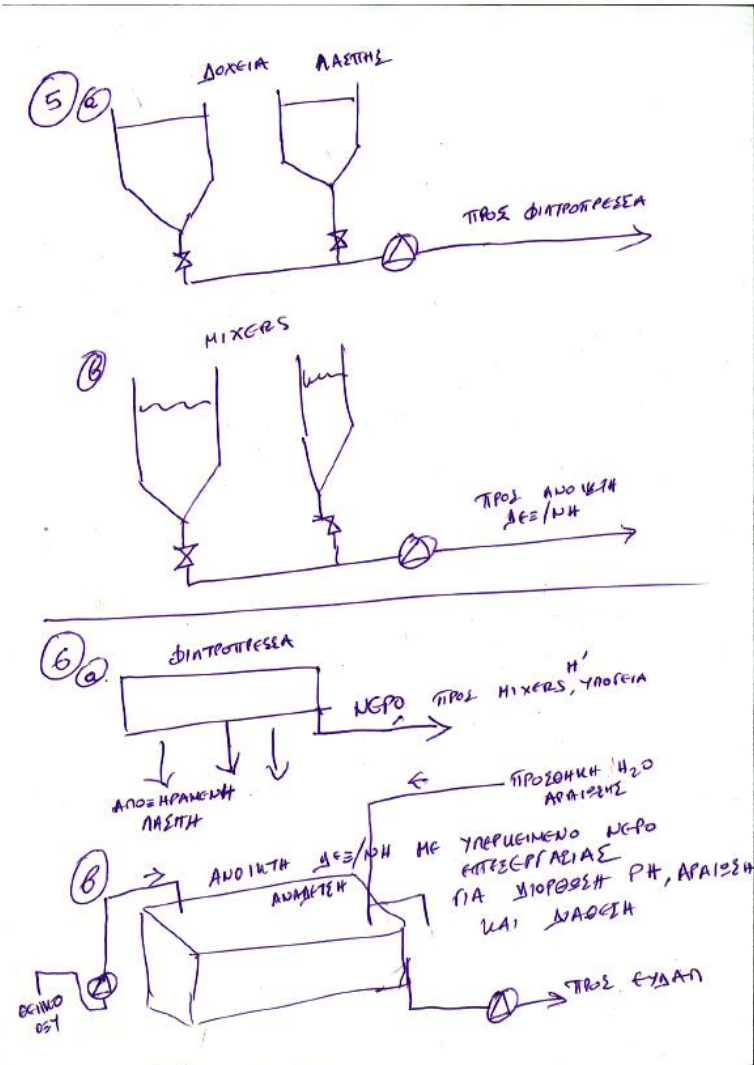 5 α ΔΟΧΕΙΑ ΛΑΣΠΗΣ
ΠΡΟΣ ΦΙΛΤΡΟΠΡΕΣΣΑ
β MIXERS
ΠΡΟΣ ΑΝΟΙΚΤΗ
ΔΕΞ/ΝΗ
6 α ΦΙΛΤΡΟΠΡΕΣΣΑ
ΝΕΡΟ ΠΡΟΣ MIXERS, Η' ΥΠΟΓΕΙΑ
ΑΠΟΞΗΡΑΜΕΝΗ
ΛΑΣΠΗ
ΠΡΟΣΘΗΚΗ H2O
ΑΡΑΙΩΣΗΣ
β ΑΝΟΙΚΤΗ ΔΕΞ/ΝΗ ΜΕ ΥΠΕΡΚΕΙΜΕΝΟ ΝΕΡΟ
ΑΝΑΔΕΥΣΗ
ΕΠΕΞΕΡΓΑΣΙΑΣ
ΓΙΑ ΔΙΟΡΘΩΣΗ PH, ΑΡΑΙΩΣΗ
ΚΑΙ ΔΙΑΘΕΣΗ
ΘΕΙΙΚΟ
ΟΞΥ
ΠΡΟΣ ΕΥΔΑΠ